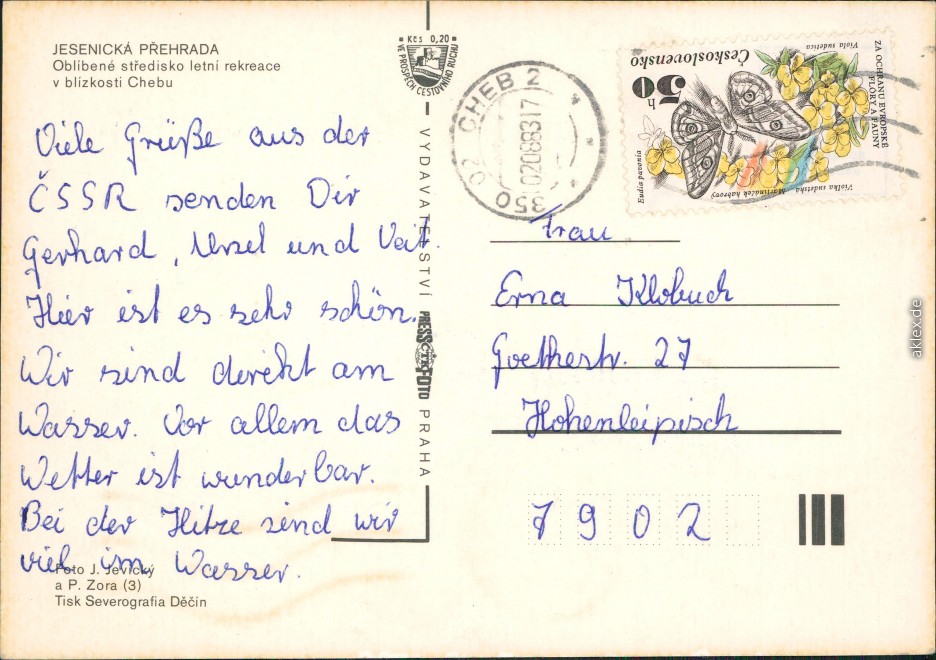 JESENICKÁ PŘEHRADA
Oblíbené středisko letní rekreace
v blízkosti Chebu
Viele Grüße aus der
ČSSR senden Dir
Gerhard, Ursel und Veit.
Hier ist es sehr schön.
Wir sind direkt am
Wasser. Vor allem das
Wetter ist wunderbar.
Bei der Hitze sind wir
viel im Wasser.
Foto J. Jevický
a P. Zora (3)
Tisk Severografia Děčín
Kčs 0,20
VE PROSPĚCH CESTOVNÍHO RUCHU
VYDAVATELSTVÍ PRESSFOTO PRAHA
ČTK
350 02 CHEB 2
02088317
Československo
50 h
ZA OCHRANU EVROPSKÉ
FLÓRY A FAUNY
Viola sudetica
Eudia pavonia
Violka sudetská - Martináček habrový
Frau
Erna Klobuch
Goethestr. 27
Hohenleipisch
7902
aklex.de